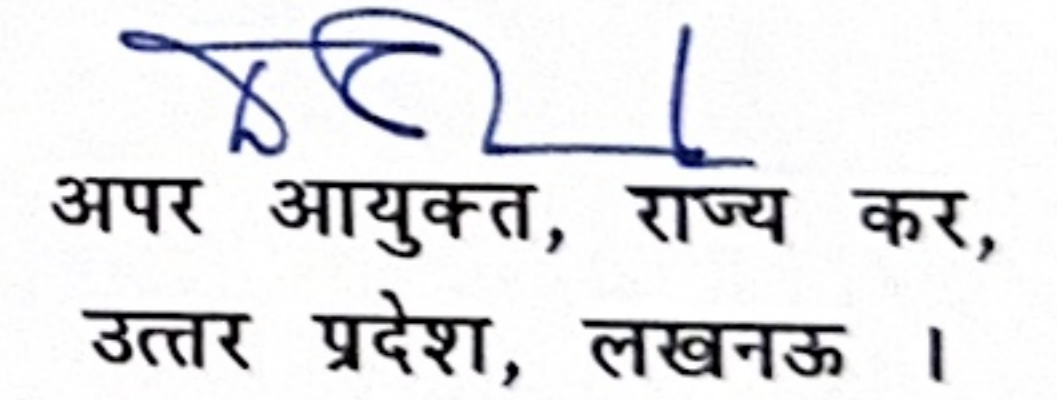 अपर आयुक्त, राज्य कर,
उत्तर प्रदेश, लखनऊ ।